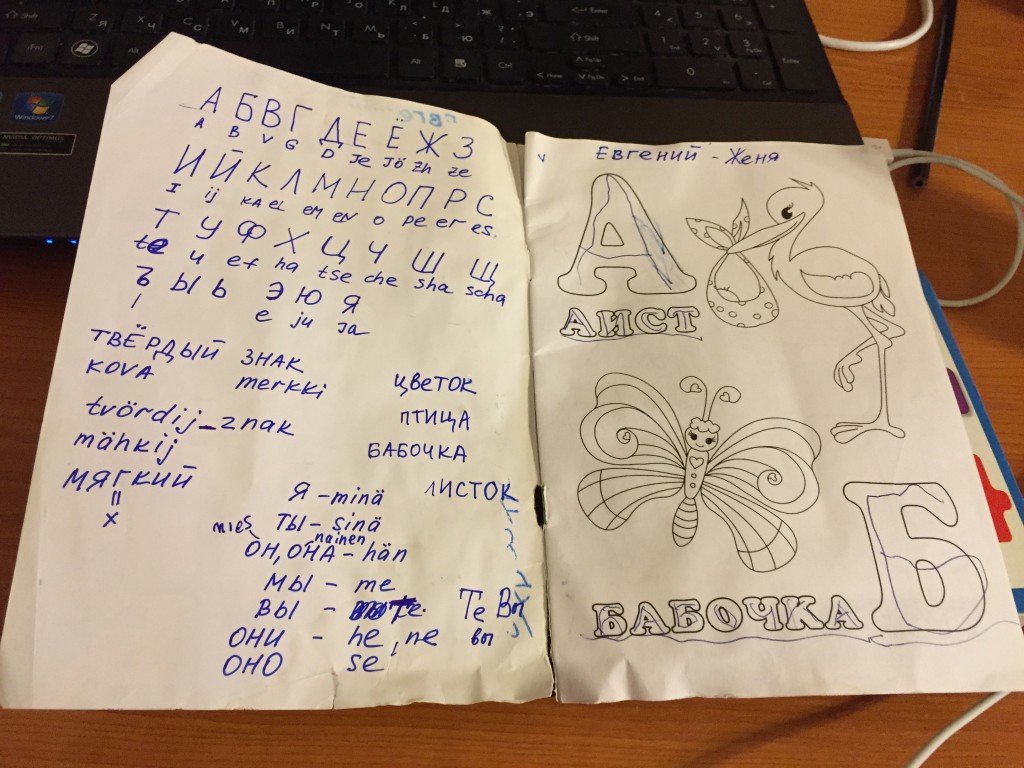 А Б В Г Д Е Е Ж З
A B V G D Je Jö Zh ze
И Й К Л М Н О П Р С
I ij KA el em en o pe er es.
Т У Ф Х Ц Ч Ш Щ
te u ef ha tse che sha scha
Ъ Ы Ь Э Ю Я
e ju ja
ТВЁРДЫЙ ЗНАК
KOVA merkki
tvördij_znak
mähkij
МЯГКИЙ
х
ЦВЕТОК
ПТИЦА
БАБОЧКА
ЛИСТОК
Я - minä
ТЫ - sinä
mies nainen
ОН, ОНА - hän
МЫ - me
ВЫ - te. Те Вы
ОНИ - he, ne вы
ОНО se
Евгений - Женя
А
АИСТ
Б
БАБОЧКА
Windows 7
Shift
Alt
Ctrl
Enter
Shift